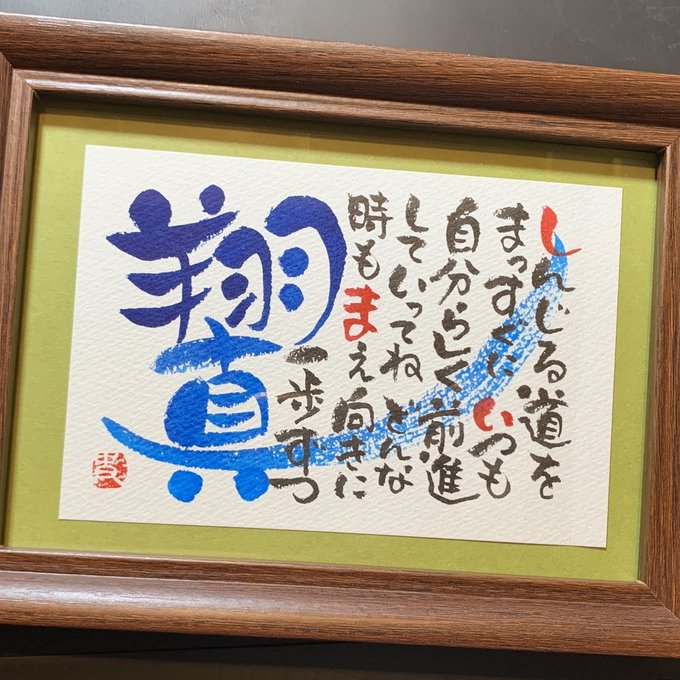 しんじる道を
まっすぐに いつも
自分らしく前進
していってね どんな
時もまえ向きに
一歩ずつ
翔真